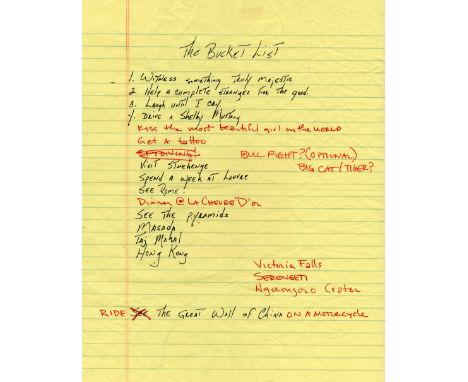 The Bucket List
1. Witness something truly majestic
2. Help a complete stranger for the good
3. Laugh until I cry
4. Drive a Shelby Mustang
Kiss the most beautiful girl in the world
Get a tattoo
SKYDIVING!
BULL FIGHT? (OPTIONAL)
Visit Stonehenge
BIG CAT/TIGER?
Spend a week at Louvre
See Rome!
Dinner @ LA CHEVRE D'or
See the pyramids
Masada
Taj Mahal
Hong Kong
Victoria Falls
SERENGETI
Ngorongoro Crater
RIDE See The Great Wall of China ON A MOTORCYCLE